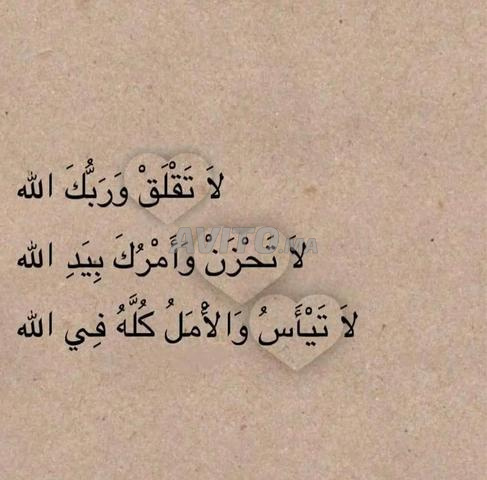 لاَ تَقْلَقْ وَرَبُّكَ الله
AVITO.MA
لاَ تَحْزَنْ وَأَمْرُكَ بِيَدِ الله
لاَ تَيْأَسُ وَالأَْمَلُ كُلَّهُ فِي الله